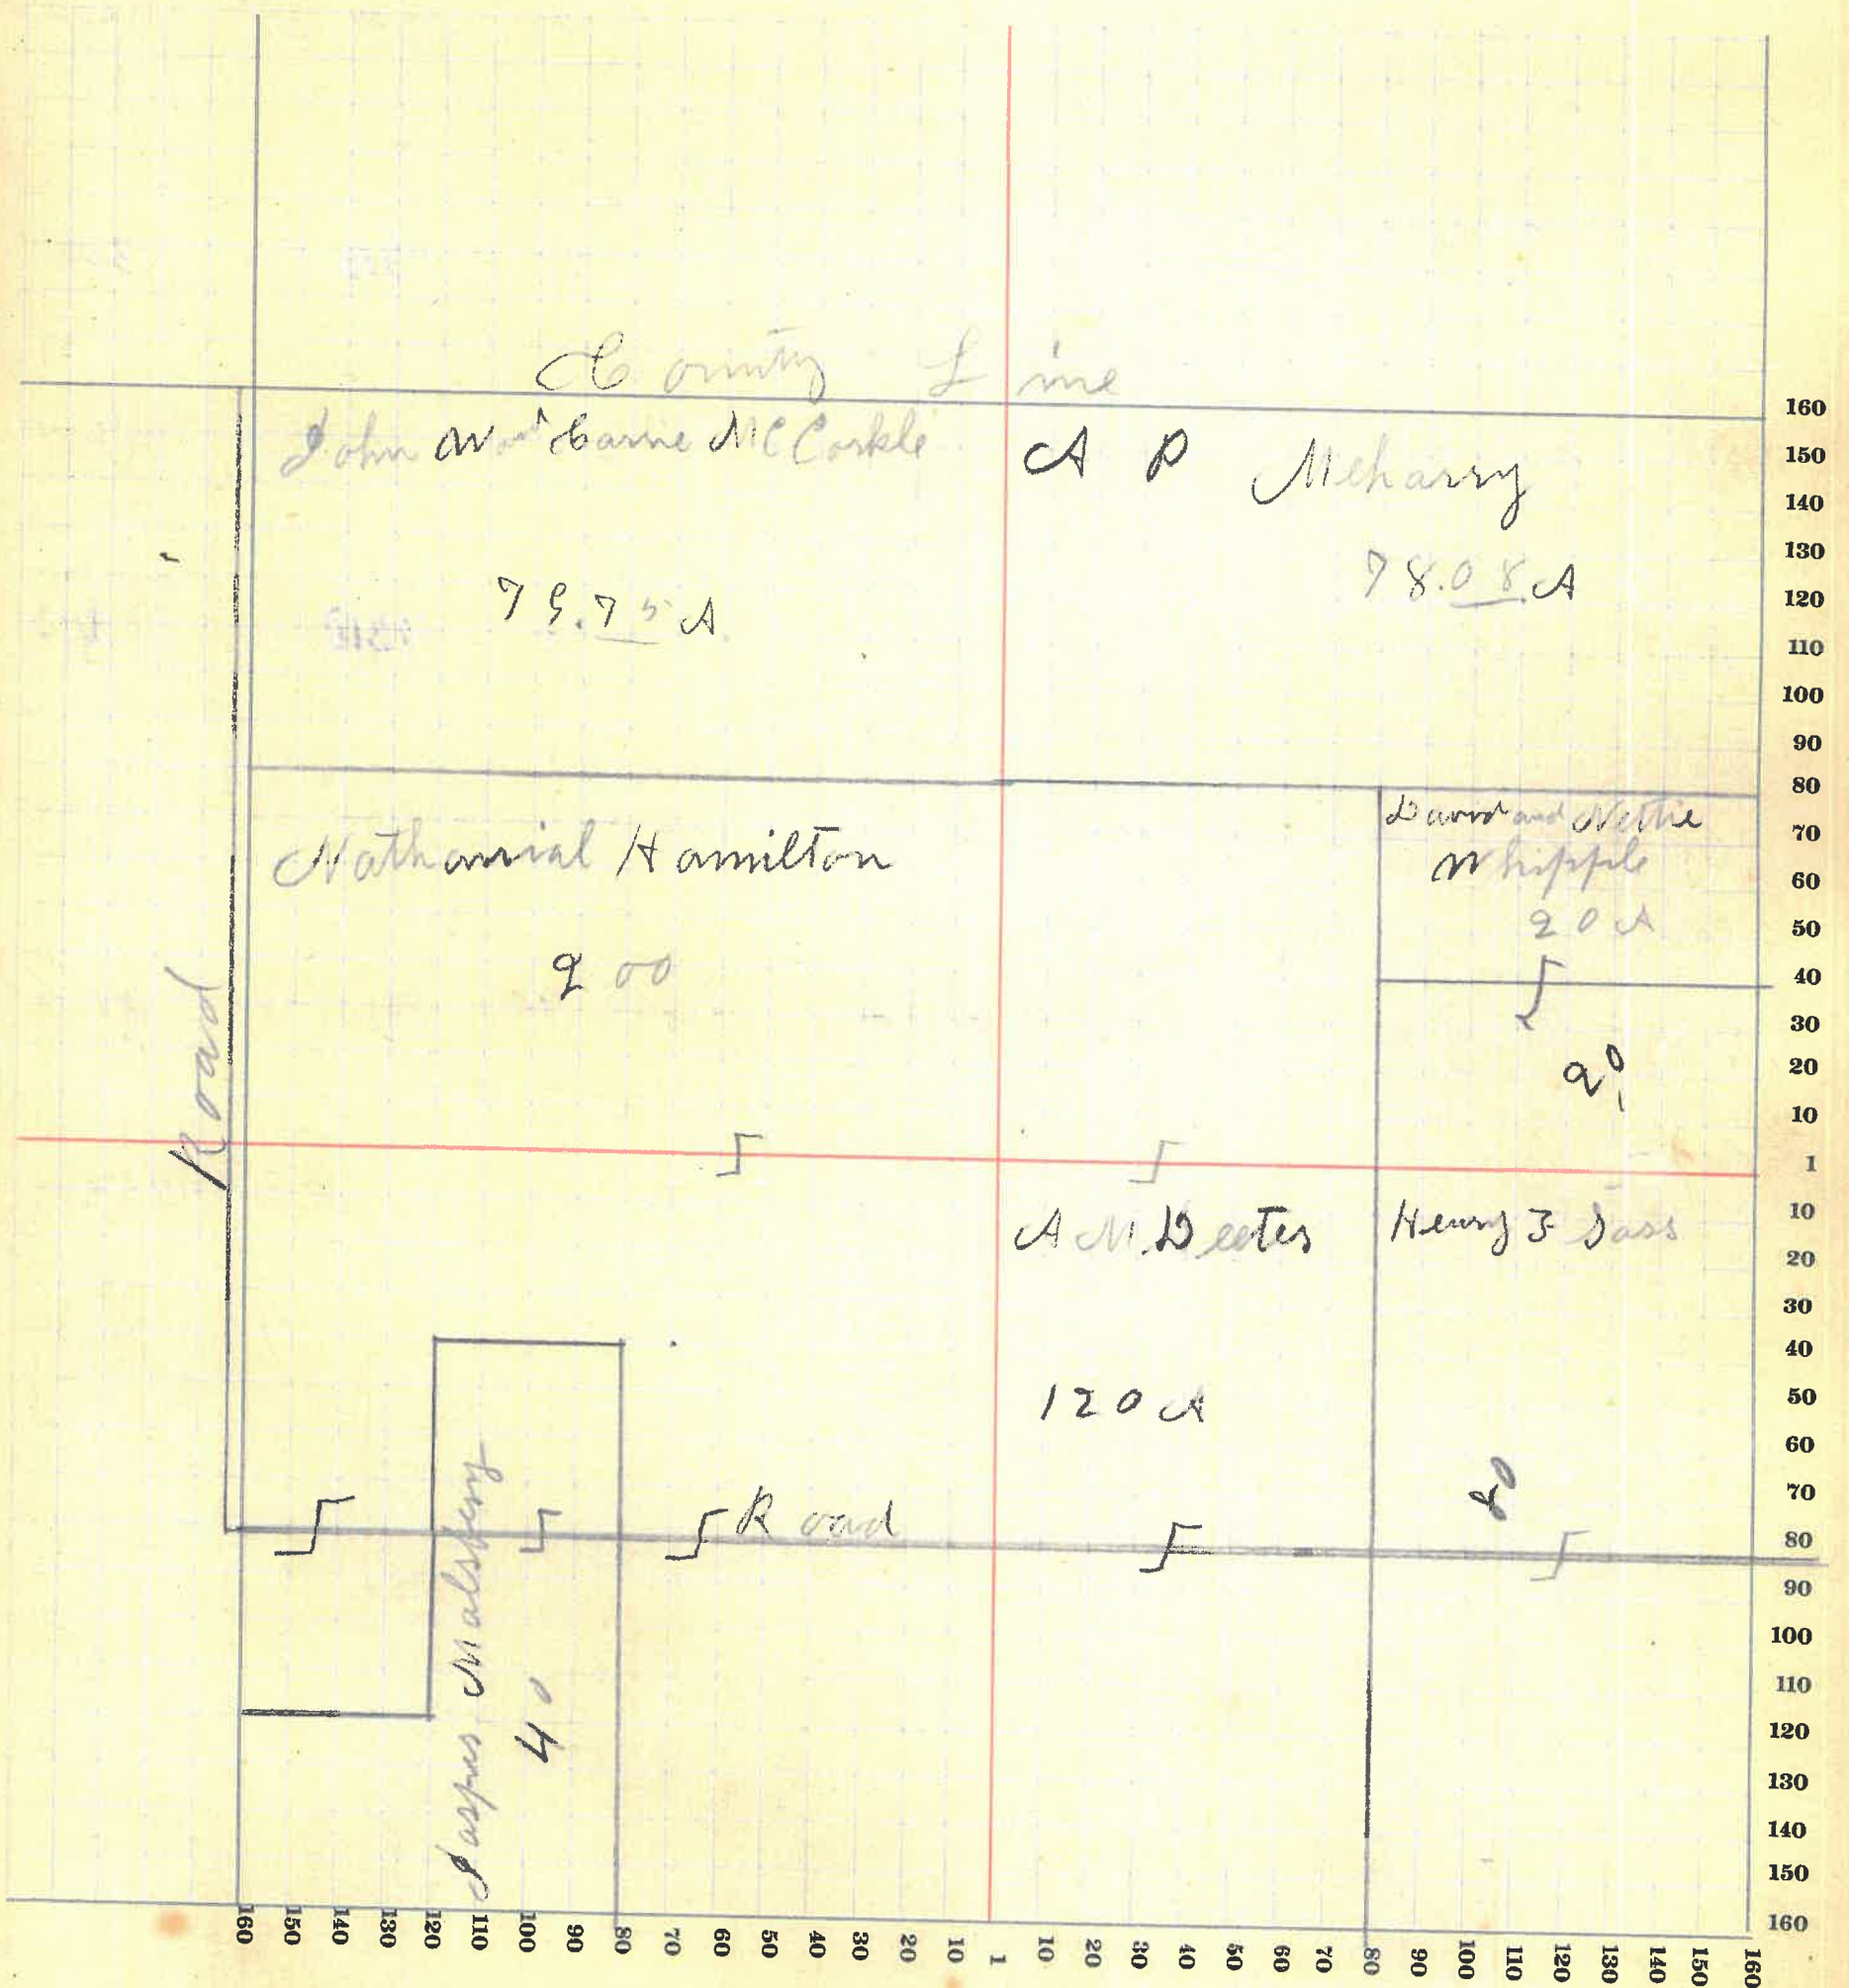 County Line
John W and Carrie McCorkle
79.75 A
A P Meharry
78.08 A
Nathanial Hamilton
200
David and Nettie
Whipple
20 A
20
Road
A M Deeter
120 A
Henry F Sass
80
Road
Jasper Malsbery
40
160
150
140
130
120
110
100
90
80
70
60
50
40
30
20
10
1
10
20
30
40
50
60
70
80
90
100
110
120
130
140
150
160
160 150 140 130 120 110 100 90 80 70 60 50 40 30 20 10 1 10 20 30 40 50 60 70 80 90 100 110 120 130 140 150 160